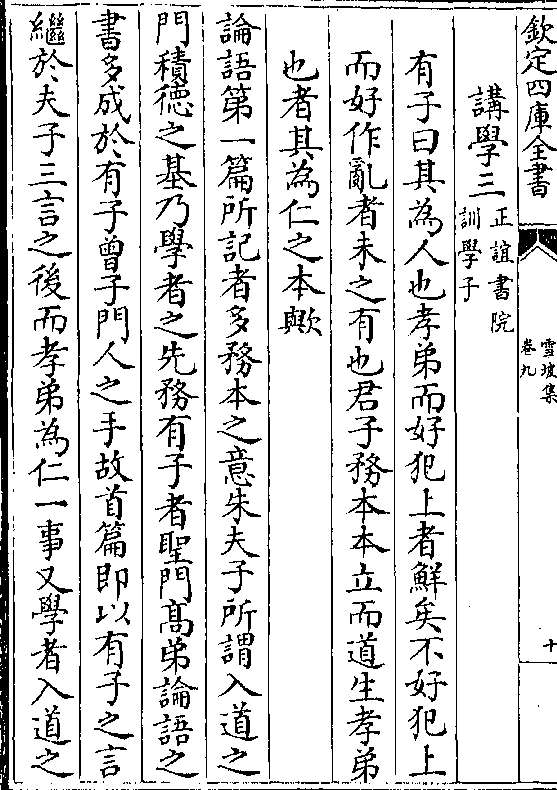 欽定四庫全書
雪坡集
卷九
十
講學三
正誼書院
訓學子
有子曰其為人也孝弟而好犯上者鮮矣不好犯上
而好作亂者未之有也君子務本本立而道生孝弟
也者其為仁之本歟
論語第一篇所記者多務本之意朱夫子所謂入道之
門積德之基乃學者之先務有子者聖門髙弟論語之
書多成於有子曾子門人之手故首篇即以有子之言
繼於夫子三言之後而孝弟為仁一事又學者入道之